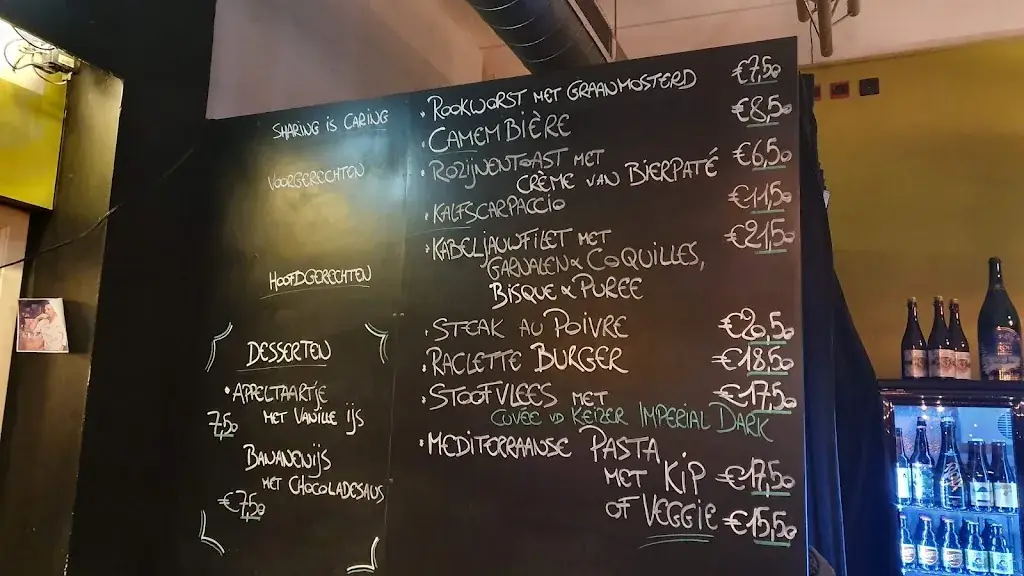 SHARING is CARING
• ROOKWORST MET GRAANMOSTERD €7,50
• CAMEMBIÈRE €8,50
VOORGERECHTEN
• ROZIJNENTOAST MET €6,50
CRÈME VAN BIERPATÉ
• KALFSCARPACCIO €11,50
HOOFDGERECHTEN
• KABELJAUWFILET MET €21,50
GARNALEN & COQUILLES,
BISQUE & PUREE
• STEAK AU POIVRE €20,50
• RACLETTE BURGER €18,50
• STOOFVLEES MET €17,50
CUVÉE VD KEIZER IMPERIAL DARK
• MEDITERRAANSE PASTA
MET KIP €17,50
OF VEGGIE €15,50
DESSERTEN
• APPELTAARTJE
7,50 MET VANILLE IJS
BANANENIJS
MET CHOCOLADESAUS
€7,50